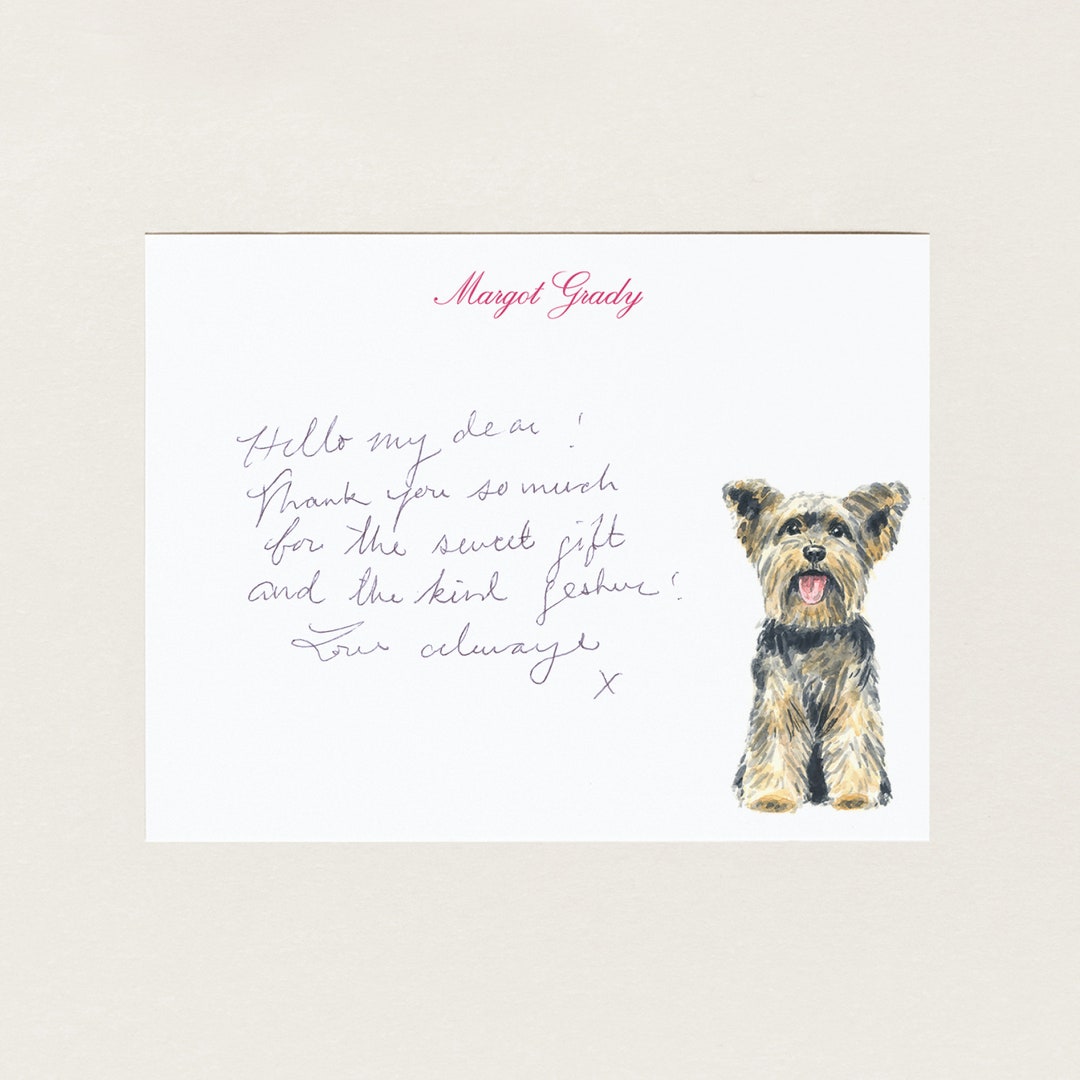 Margot Grady
Hello my dear!
Thank you so much
for the sweet gift
and the kind gesture!
Love always
X